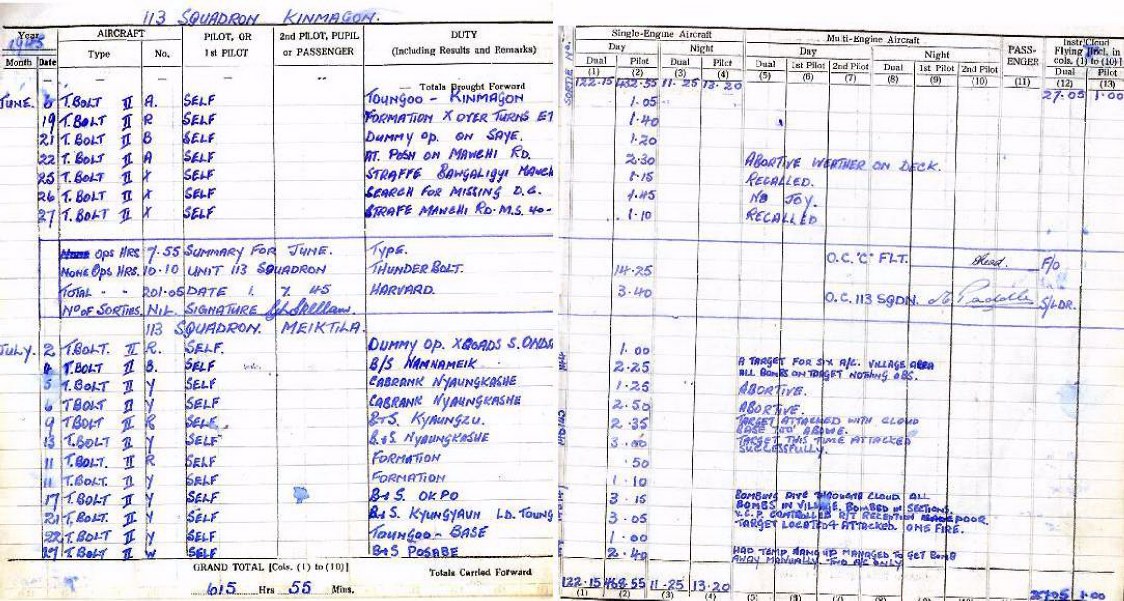 113 SQUADRON KINMAGON.
Year 1945 AIRCRAFT PILOT, OR 1ST PILOT 2ND PILOT, PUPIL or PASSENGER DUTY (Including Results and Remarks) SORTIE No. Single-Engine Aircraft Multi-Engine Aircraft PASS-ENGER Instr/Cloud Flying [Incl. in cols. (1) to (10)]
Month Date Type No. Day Night Day Night
Dual Pilot Dual Pilot Dual 1st Pilot 2nd Pilot Dual 1st Pilot 2nd Pilot Dual Pilot
(1) (2) (3) (4) (5) (6) (7) (8) (9) (10) (11) (12) (13)
— — — — — Totals Brought Forward 122.15 452.55 11.25 13.20 27.05 1.00
JUNE. T.BOLT II A. SELF TOUNGOO - KINMAGON 1.05
19 T.BOLT II R SELF FORMATION X OVER TURNS 1.40
21 T.BOLT II B SELF DUMMY OP. ON SAYE. 1.20
22 T.BOLT II A SELF AT. POSN ON MAWCHI RD. 2.30 ABORTIVE WEATHER ON DECK.
25 T.BOLT II X SELF STRAFFE BAWGALIGYI MAWCH 1.15 RECALLED.
26 T.BOLT II X SELF SEARCH FOR MISSING D.C. 1.45 NO JOY.
27 T.BOLT II X SELF STRAFE MAWCHI RD. M.S. 40- 1.10 RECALLED
OPS HRS 7.55 SUMMARY FOR JUNE. TYPE. O.C. "C" FLT. F/O
NONE OPS HRS. 10.10 UNIT 113 SQUADRON THUNDERBOLT. 14.25
TOTAL - - 201.05 DATE 1. 7. 45 HARVARD. 3.40 O.C. 113 SQDN. S/LDR.
No OF SORTIES. NIL. SIGNATURE
113 SQUADRON. MEIKTILA.
JULY. 2 T.BOLT. II R. SELF. DUMMY OP. XROADS S. 1.00
4 T.BOLT II B. SELF B/S NAMNAMEIK 2.25 A TARGET FOR SIX A/C. VILLAGE AREA
ALL BOMBS ON TARGET NOTHING OBS.
5 T.BOLT II Y SELF CABRANK NYAUNGKASHE 1.25 ABORTIVE.
6 TBOLT II Y SELF CABRANK NYAUNGKASHE 2.50 ABORTIVE.
9 TBOLT II R SELF B+S. KYAUNGZU. 2.35 TARGET ATTACKED WITH CLOUD
BASE 700' ABOVE.
13 T.BOLT II Y SELF B+S NYAUNGKASHE 3.00 TARGET THIS TIME ATTACKED
SUCCESSFULLY.
11 T.BOLT. II R SELF FORMATION .50
11 T.BOLT. II Y SELF FORMATION 1.10
17 T.BOLT II Y SELF B+S. OKPO 3.15 BOMBING DIVE THROUGH CLOUD ALL
BOMBS IN VILLAGE, BOMBED IN SECTIONS.
21 T.BOLT. II Y SELF B+S. KYUNGYAUN LD. TOUNG 3.05 V.C.P. CONTROLLED R/T RECEPTION POOR.
TARGET LOCATED + ATTACKED. ONE FIRE.
22 T.BOLT II Y SELF TOUNGOO - BASE 1.00
T.BOLT II W SELF B+S POSABE 2.40 HAD TEMP HANG UP MANAGED TO GET BOMB
AWAY MANUALLY. TWO A/C ONLY
GRAND TOTAL [Cols. (1) to (10)] Totals Carried Forward
615 Hrs 55 Mins. 122.15 468.55 11.25 13.20 1.00
(1) (2) (3) (4) (5) (6) (7) (8) (9) (10) (12) (13)